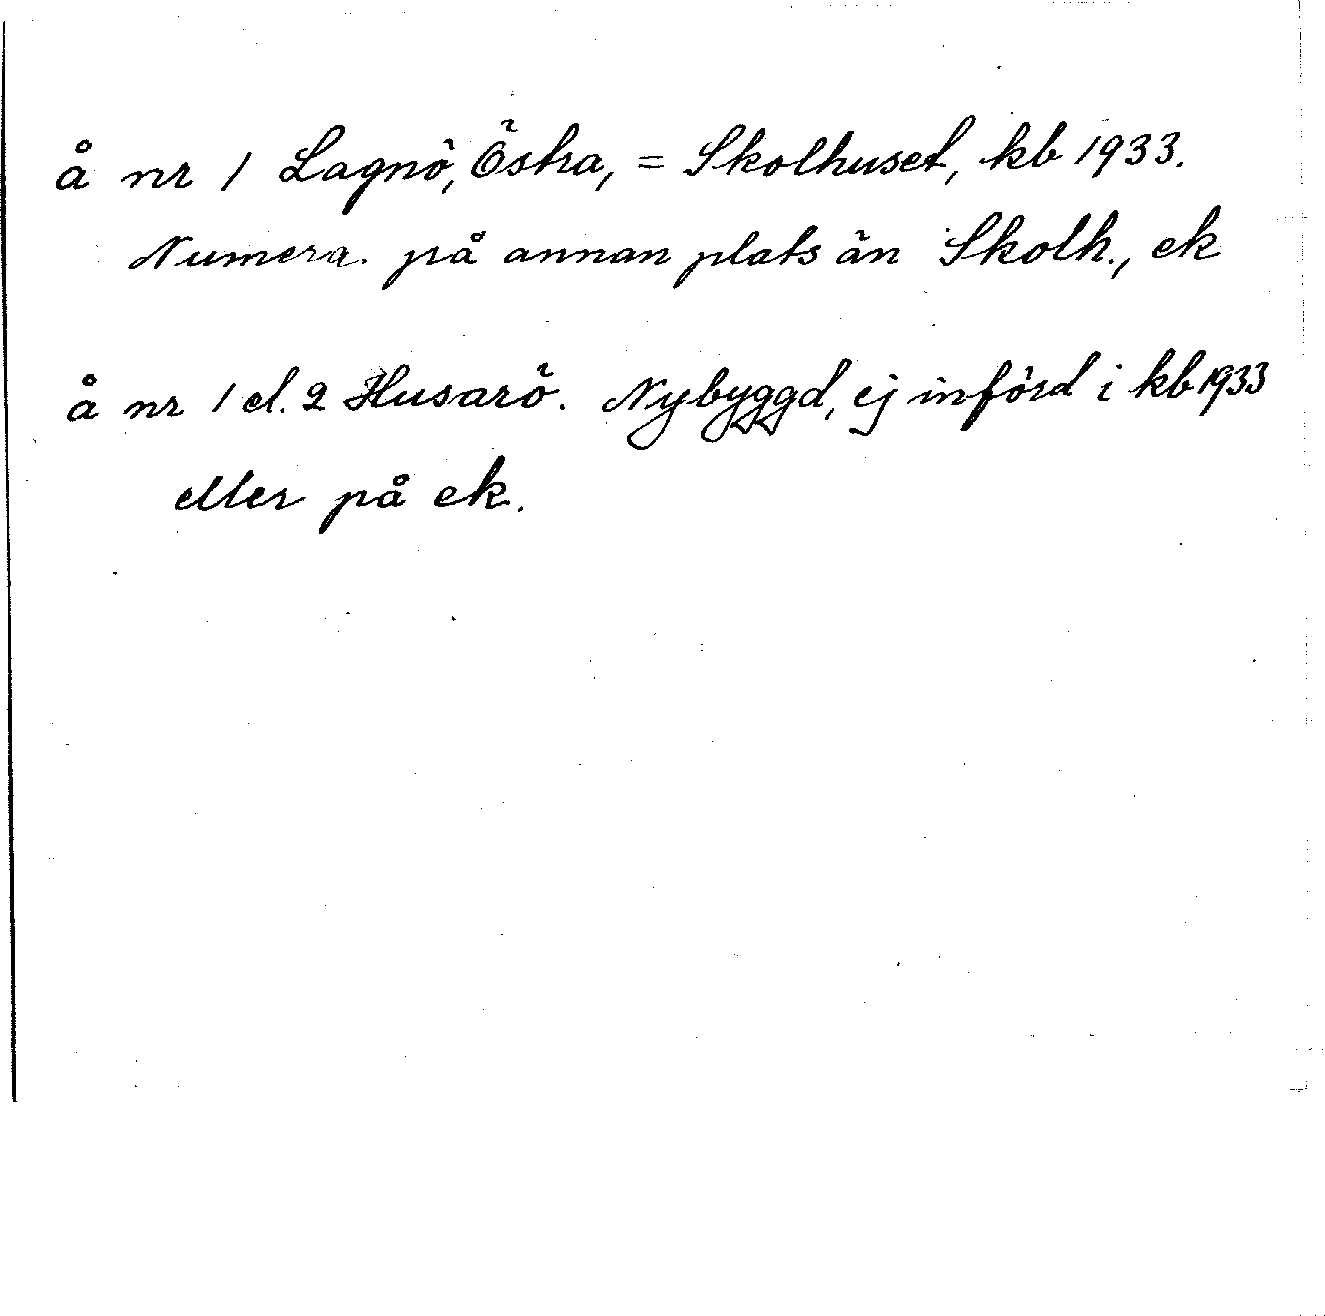 å nr 1 Lagnö, Östra, = Skolhuset, kb 1933.
Numera på annan plats än Skolh., ek
å nr 1 el. 2 Husarö. Nybyggd, ej införd i kb 1933
eller på ek.